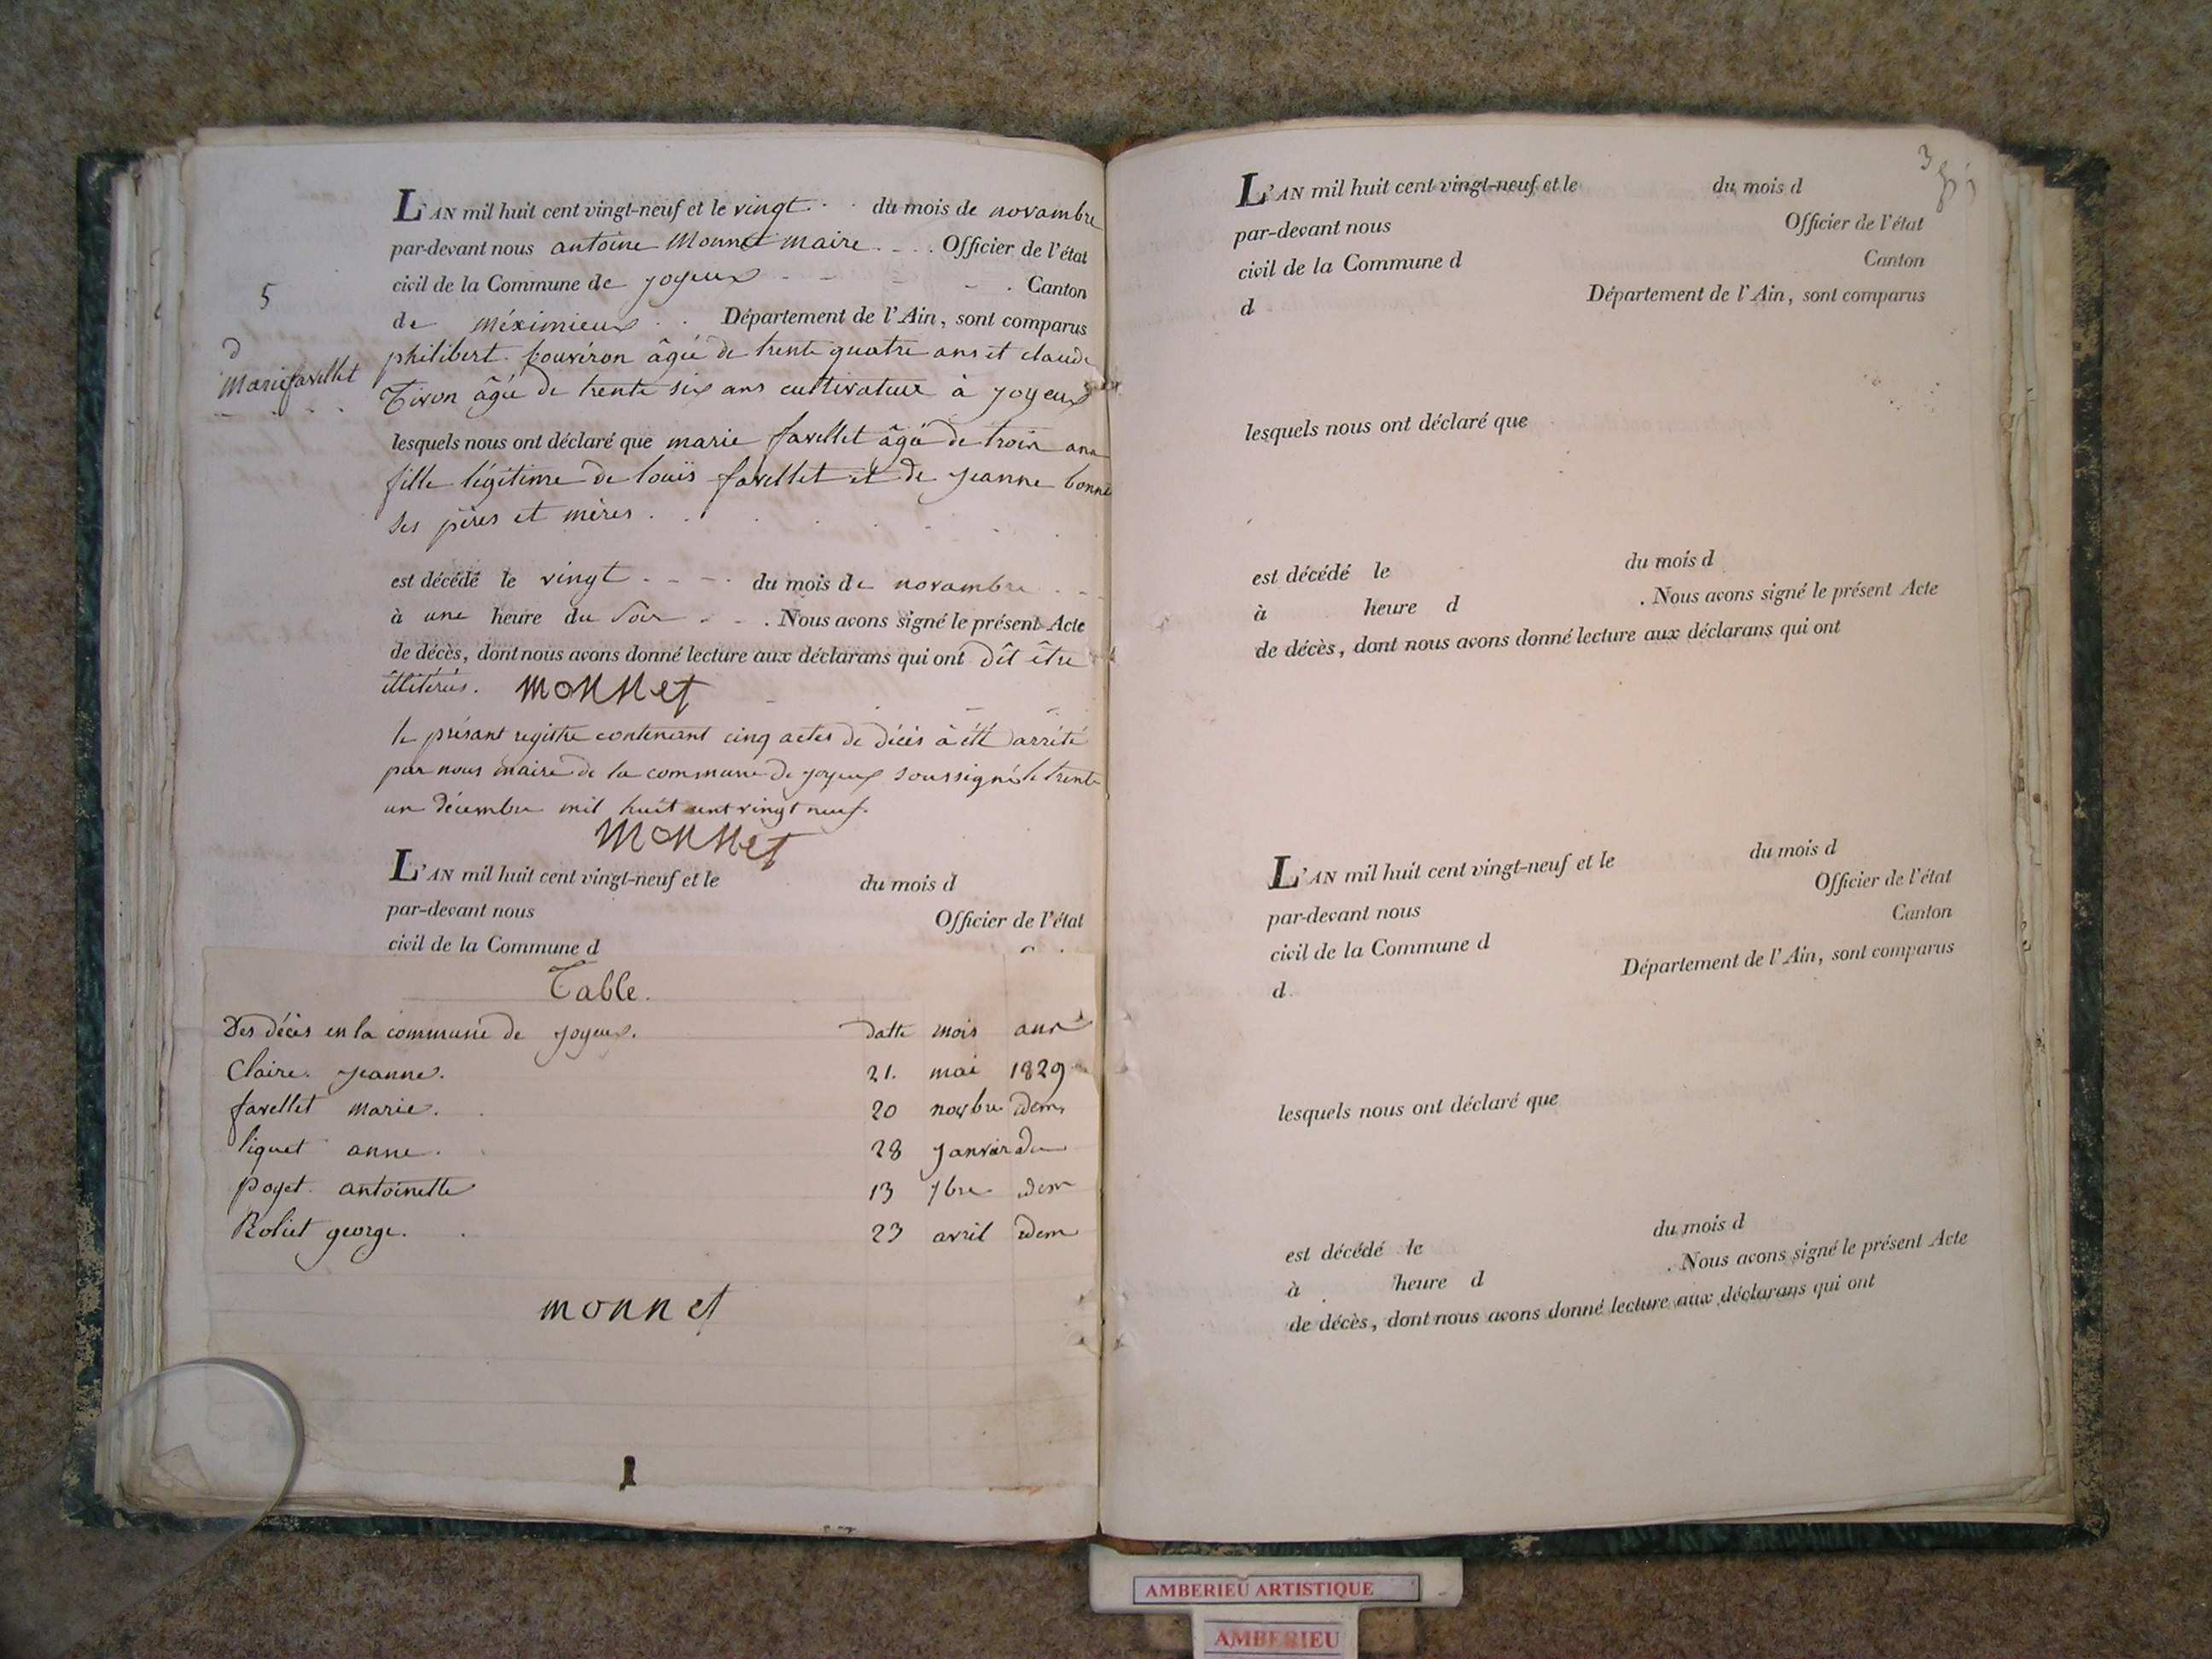 L'AN mil huit cent vingt-neuf et le vingt du mois de novambre
par-devant nous antoine Monnet maire Officier de l'état
civil de la Commune de joyeux Canton
de méximieux Département de l'Ain, sont comparus
philibert âgé de trente quatre ans et claude
âgé de trente six ans cultivature à joyeux
5
D
Marie favellet
lesquels nous ont déclaré que marie favellet âgé de trois ans
fille légitime de louïs favellet et de jeanne bonne
ses pères et mères.
est décédé le vingt du mois de novambre
à une heure du soir . Nous avons signé le présent Acte
de décès, dont nous avons donné lecture aux déclarans qui ont dit être
illitérés. Monnet
le présant registre contenant cinq actes de décès à été arrêté
par nous maire de la commune de joyeux soussigné le trente
un décembre mil huit cent vingt neuf.
Monnet
L'AN mil huit cent vingt-neuf et le du mois d
par-devant nous Officier de l'état
civil de la Commune d
Table.
Des décès en la commune de joyeux. datte mois ans
Claire. jeanne. 21. mai 1829
favellet marie. 20 novbre idem
liquet anne. 28 janvier du
poyet. antoinette 13 7bre idem
Roliet george. 23 avril idem
monnet
3
L'AN mil huit cent vingt-neuf et le du mois d
par-devant nous Officier de l'état
civil de la Commune d Canton
d Département de l'Ain, sont comparus
lesquels nous ont déclaré que
est décédé le du mois d
à heure d . Nous avons signé le présent Acte
de décès, dont nous avons donné lecture aux déclarans qui ont
L'AN mil huit cent vingt-neuf et le du mois d
par-devant nous Officier de l'état
civil de la Commune d Canton
d Département de l'Ain, sont comparus
lesquels nous ont déclaré que
est décédé le du mois d
à heure d . Nous avons signé le présent Acte
de décès, dont nous avons donné lecture aux déclarans qui ont
AMBERIEU ARTISTIQUE
AMBERIEU